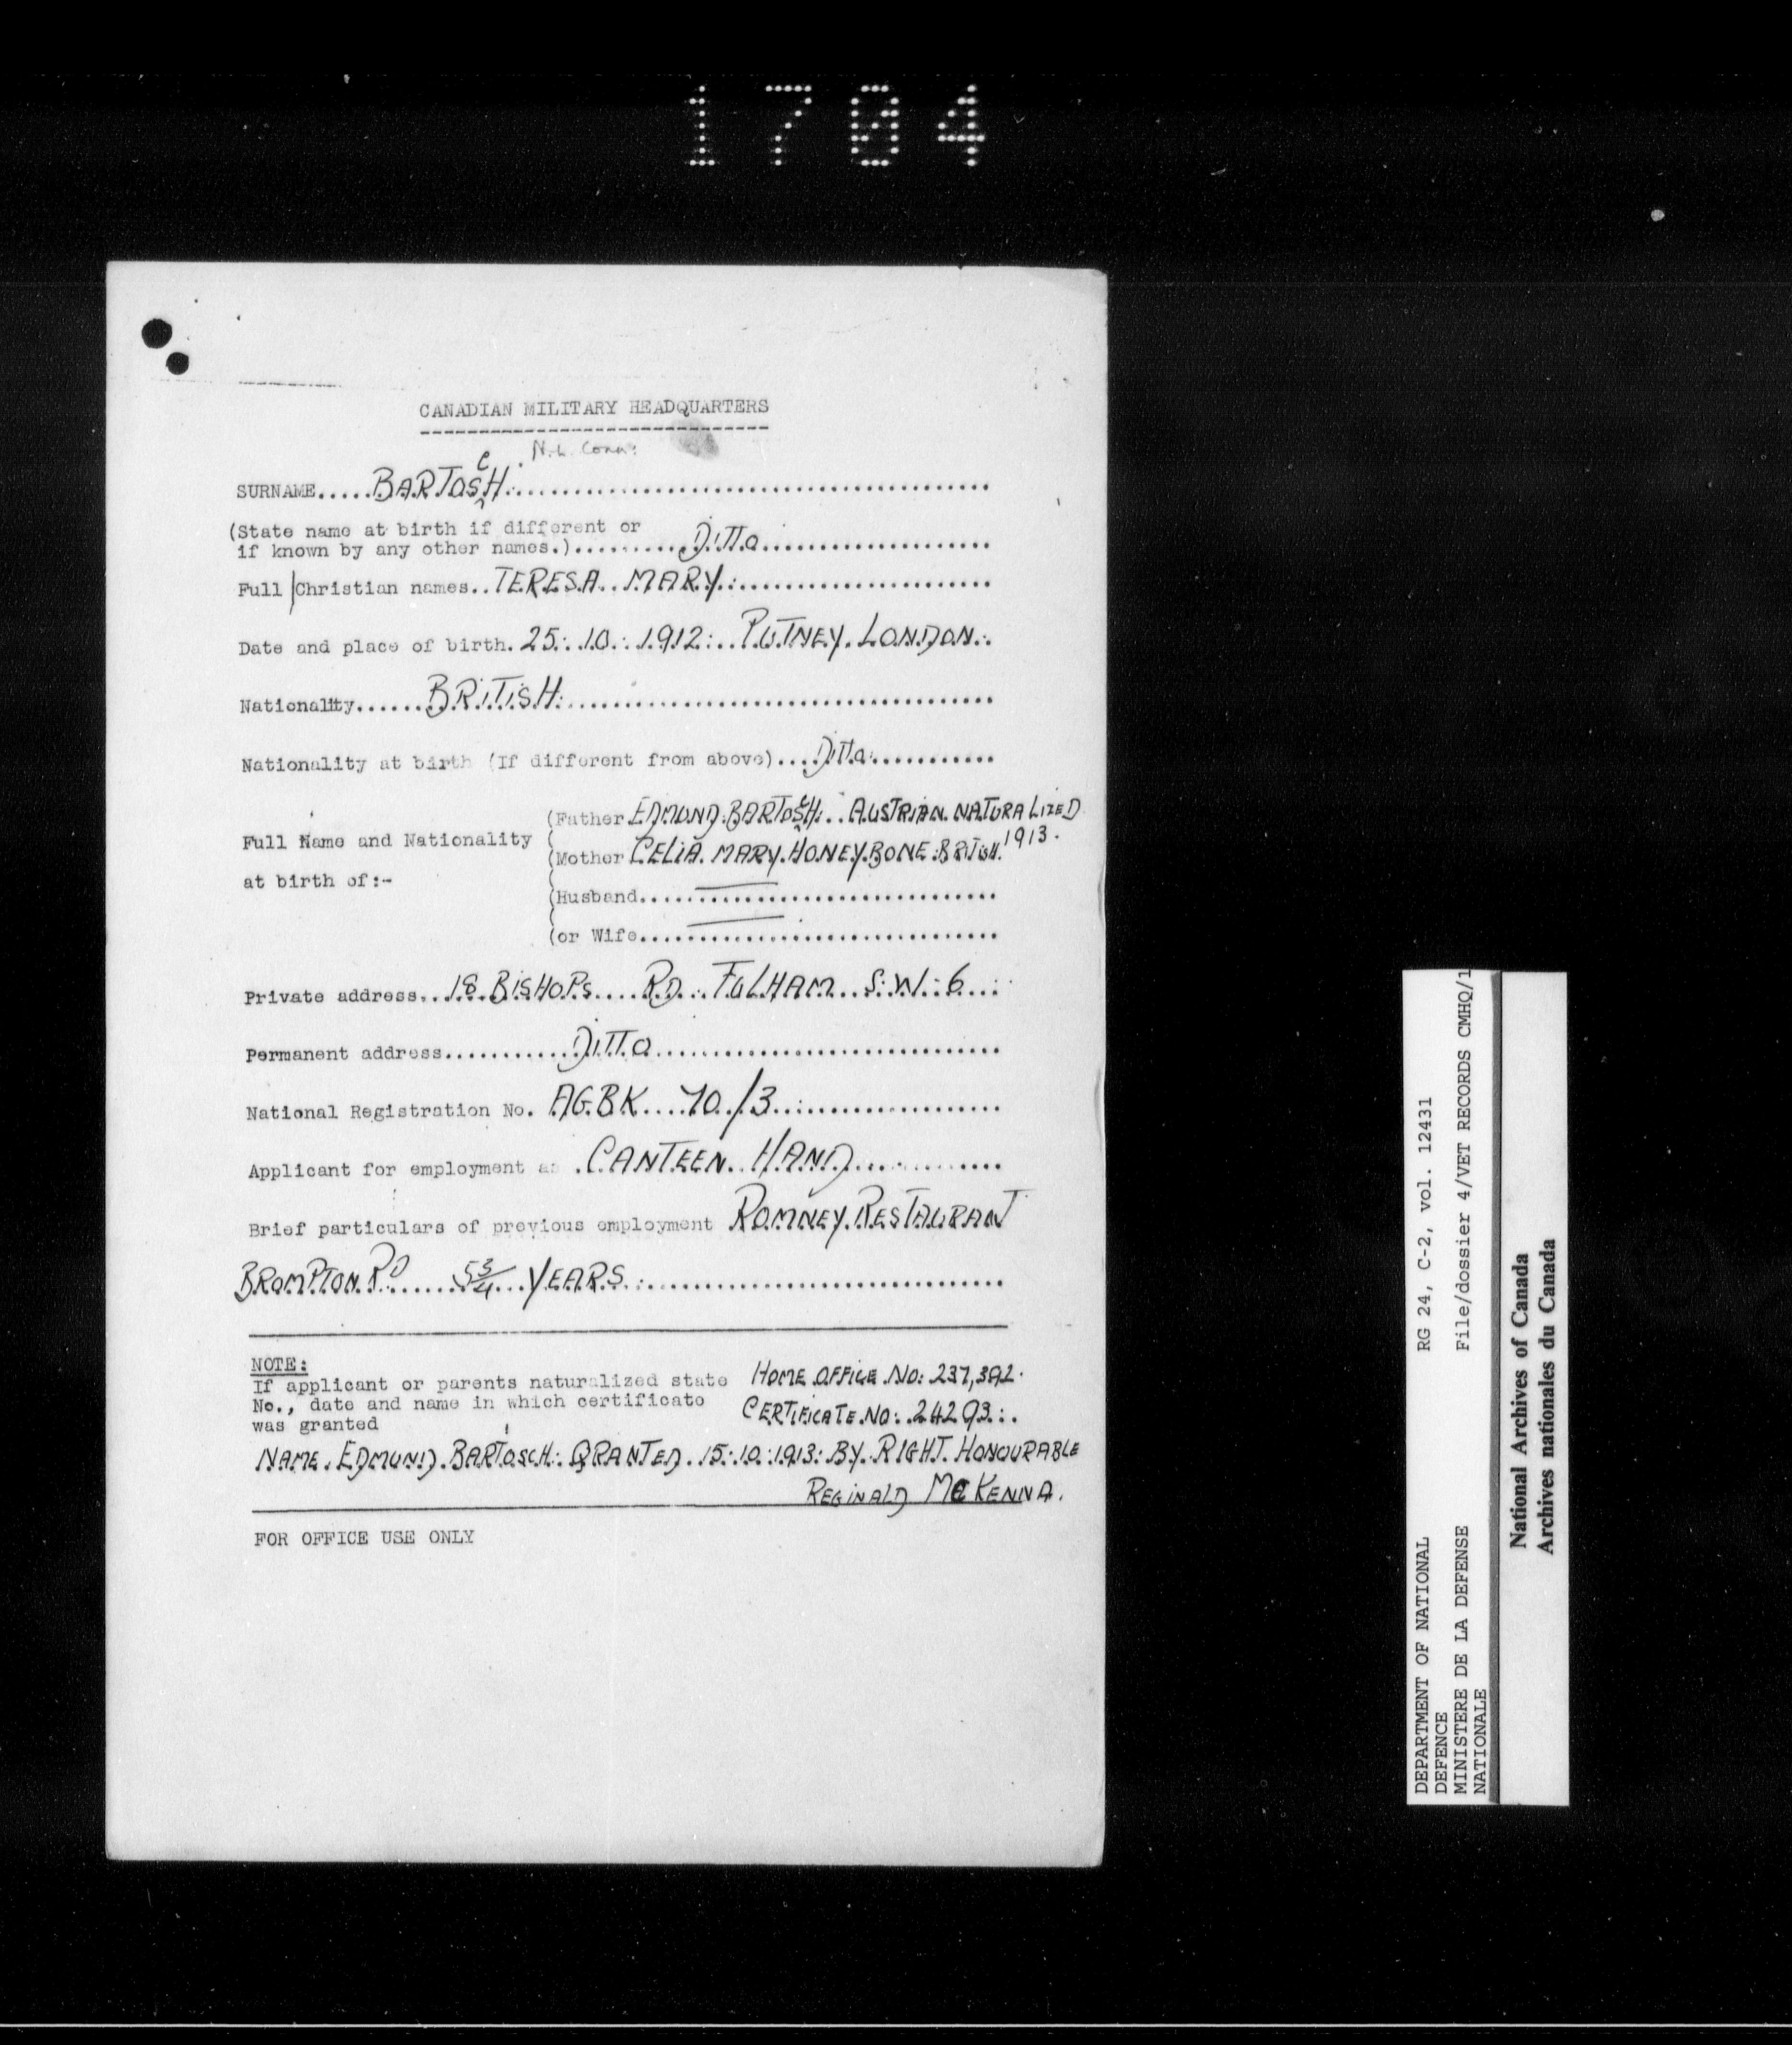 1704
CANADIAN MILITARY HEADQUARTERS
N.L. Conn:
SURNAME.....BARTOSCH:
(State name at birth if different or
if known by any other names.)..........Ditto
Full Christian names..TERESA MARY:
Date and place of birth. 25: 10: 1912: PUTNEY. LONDON.
Nationality......BRITISH:
Nationality at birth (If different from above)....Ditto
Full Name and Nationality
at birth of:-
(Father EDMUND. BARTOSCH: AUSTRIAN. NATURALIZED
1913.
(Mother CELIA. MARY. HONEYBONE. BRITISH.
(Husband
(or Wife
Private address..18 BISHOPS RD. FULHAM S.W.6
Permanent address............Ditto
National Registration No. AGBK 70/3
Applicant for employment as CANTEEN HAND
Brief particulars of previous employment ROMNEY RESTAURANT
BROMPTON. RD 5 3/4 YEARS
NOTE:
If applicant or parents naturalized state HOME OFFICE NO: 237,392.
No., date and name in which certificate CERTIFICATE NO: 24293
was granted
NAME. EDMUND. BARTOSCH: GRANTED. 15: 10: 1913: BY. RIGHT. HONOURABLE
REGINALD McKENNA.
FOR OFFICE USE ONLY
DEPARTMENT OF NATIONAL DEFENCE
MINISTERE DE LA DEFENSE NATIONALE
RG 24, C-2, vol. 12431
File/dossier 4/VET RECORDS CMHQ/1
National Archives of Canada
Archives nationales du Canada